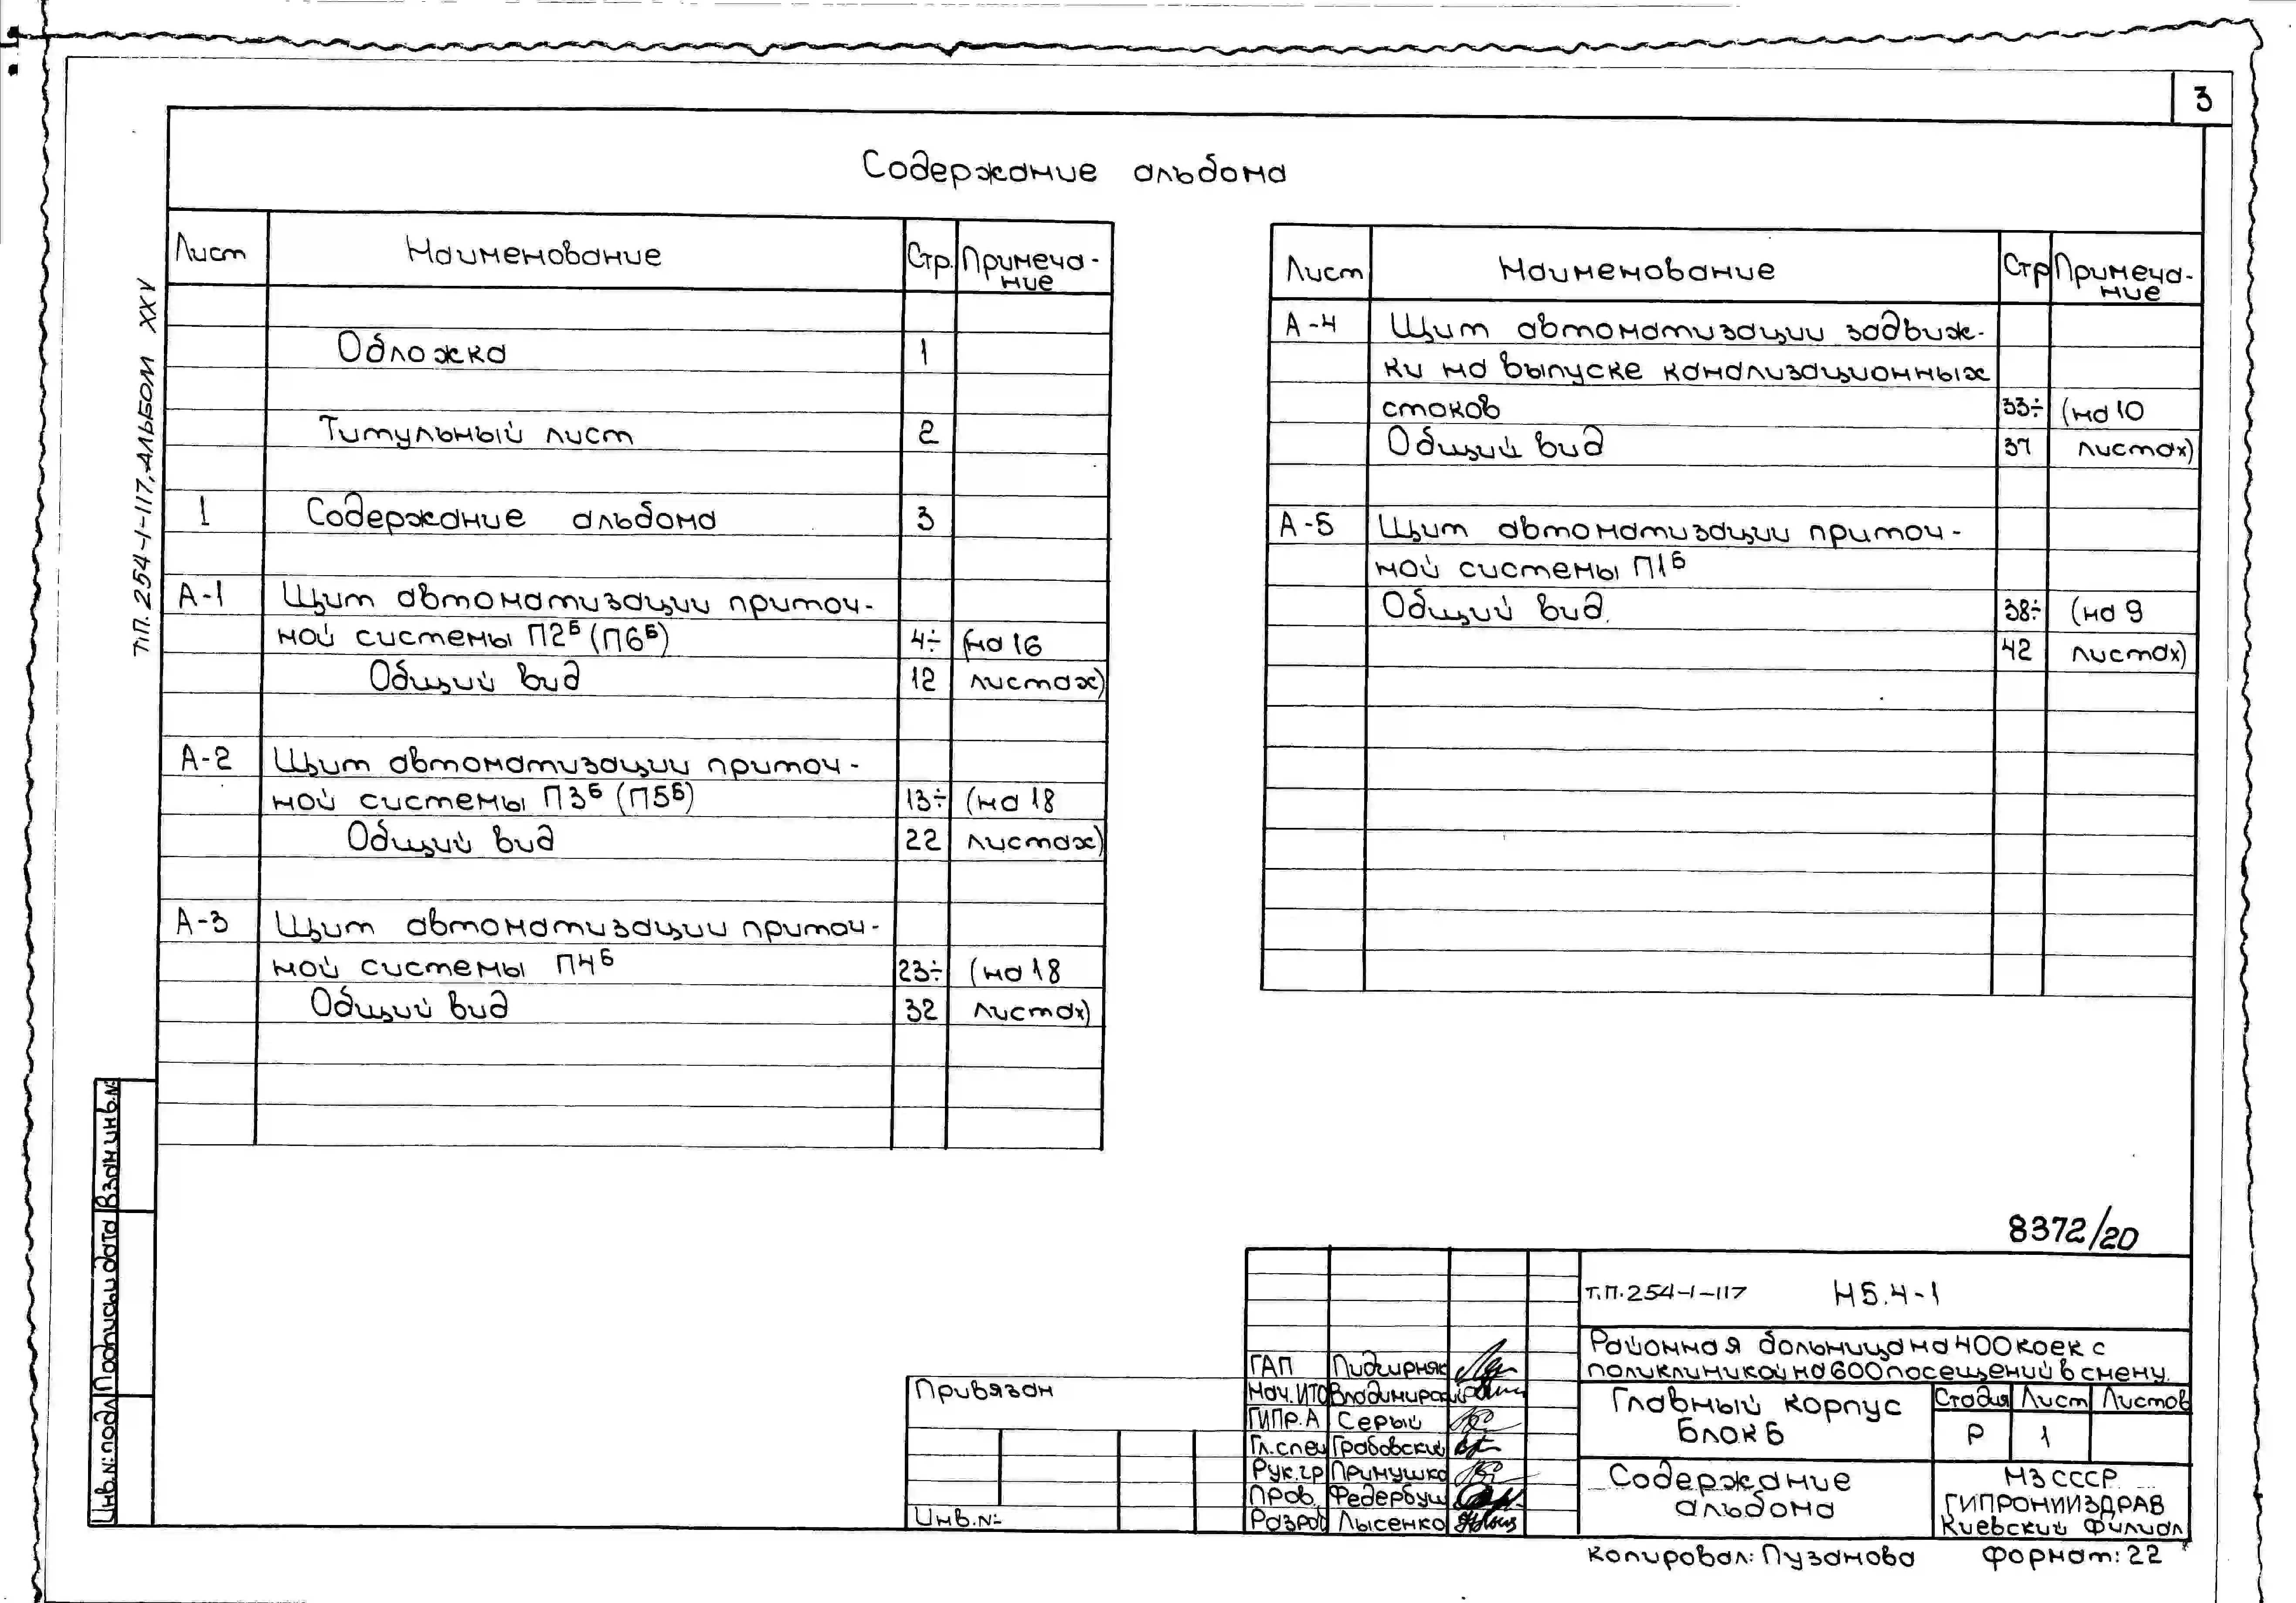 3
Содержание альбома
Т.П. 254-1-117, АЛЬБОМ XXV
Лист Наименование Стр. Примеча-
ние
Обложка 1
Титульный лист 2
1 Содержание альбома 3
А-1 Щит автоматизации приточ-
ной системы П2Б (П6Б) 4÷ (на 16
Общий вид 12 листах)
А-2 Щит автоматизации приточ-
ной системы П3Б (П5Б) 13÷ (на 18
Общий вид 22 листах)
А-3 Щит автоматизации приточ-
ной системы П4Б 23÷ (на 18
Общий вид 32 листах)
Лист Наименование Стр Примеча-
ние
А-4 Щит автоматизации задвиж-
ки на выпуске канализационных
стоков 33÷ (на 10
Общий вид 37 листах)
А-5 Щит автоматизации приточ-
ной системы П1Б
Общий вид. 38÷ (на 9
42 листах)
Взам инв.№
Подпись и дата
Инв.№ подл
8372/20
Т.П.254-1-117 НБ.4-1
Районная больница на 400 коек с
поликлиникой на 600 посещений в смену.
Главный корпус
Блок Б
Стадия Лист Листов
Р 1
Содержание
альбома
МЗ СССР
ГИПРОНИИЗДРАВ
Киевский Филиал
ГАП Пидгирняк
Нач.ИТО Владимирский
ГИПР.А Серый
Гл.спец Грабовский
Рук.гр Примушко
Пров. Федербуш
Разраб Лысенко
Привязан
Инв.№
Копировал: Пузанова Формат: 22